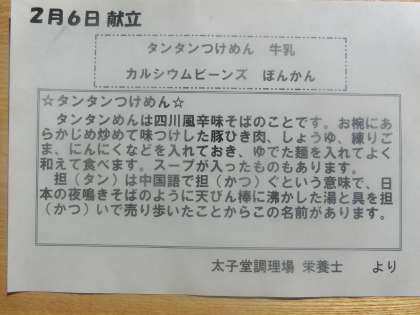 2月6日 献立
タンタンつけめん 牛乳
カルシウムビーンズ ぽんかん
☆タンタンつけめん☆
タンタンめんは四川風辛味そばのことです。お椀にあ
らかじめ炒めて味つけした豚ひき肉、しょうゆ、練りご
ま、にんにくなどを入れておき、ゆでた麺を入れてよく
和えて食べます。スープが入ったものもあります。
担（タン）は中国語で担（かつ）ぐという意味で、日
本の夜鳴きそばのように天びん棒に沸かした湯と具を担
（かつ）いで売り歩いたことからこの名前があります。
太子堂調理場 栄養士 より